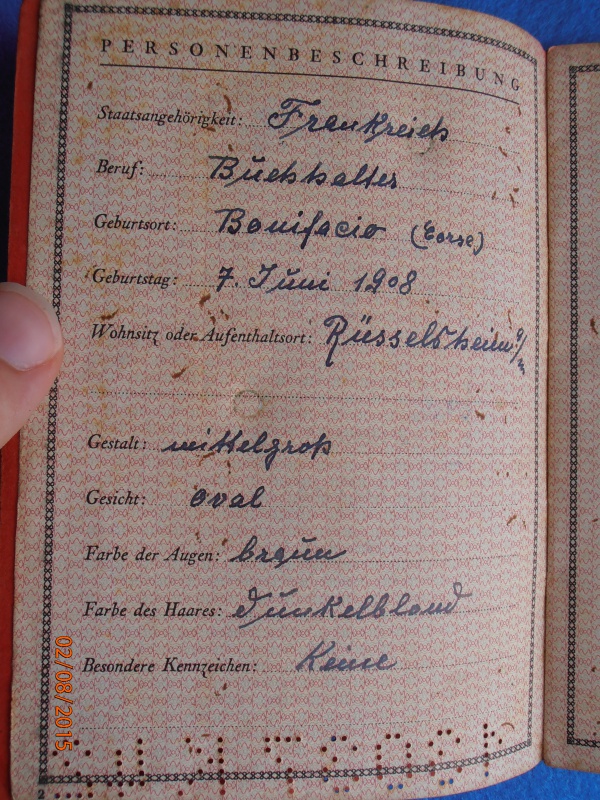 PERSONENBESCHREIBUNG
Staatsangehörigkeit: Frankreich
Beruf: Buchhalter
Geburtsort: Bonifacio (Corse)
Geburtstag: 7. Juni 1908
Wohnsitz oder Aufenthaltsort: Rüsselsheim a/m
Gestalt: mittelgroß
Gesicht: oval
Farbe der Augen: braun
Farbe des Haares: dunkelblond
Besondere Kennzeichen: Keine
2
02/08/2015